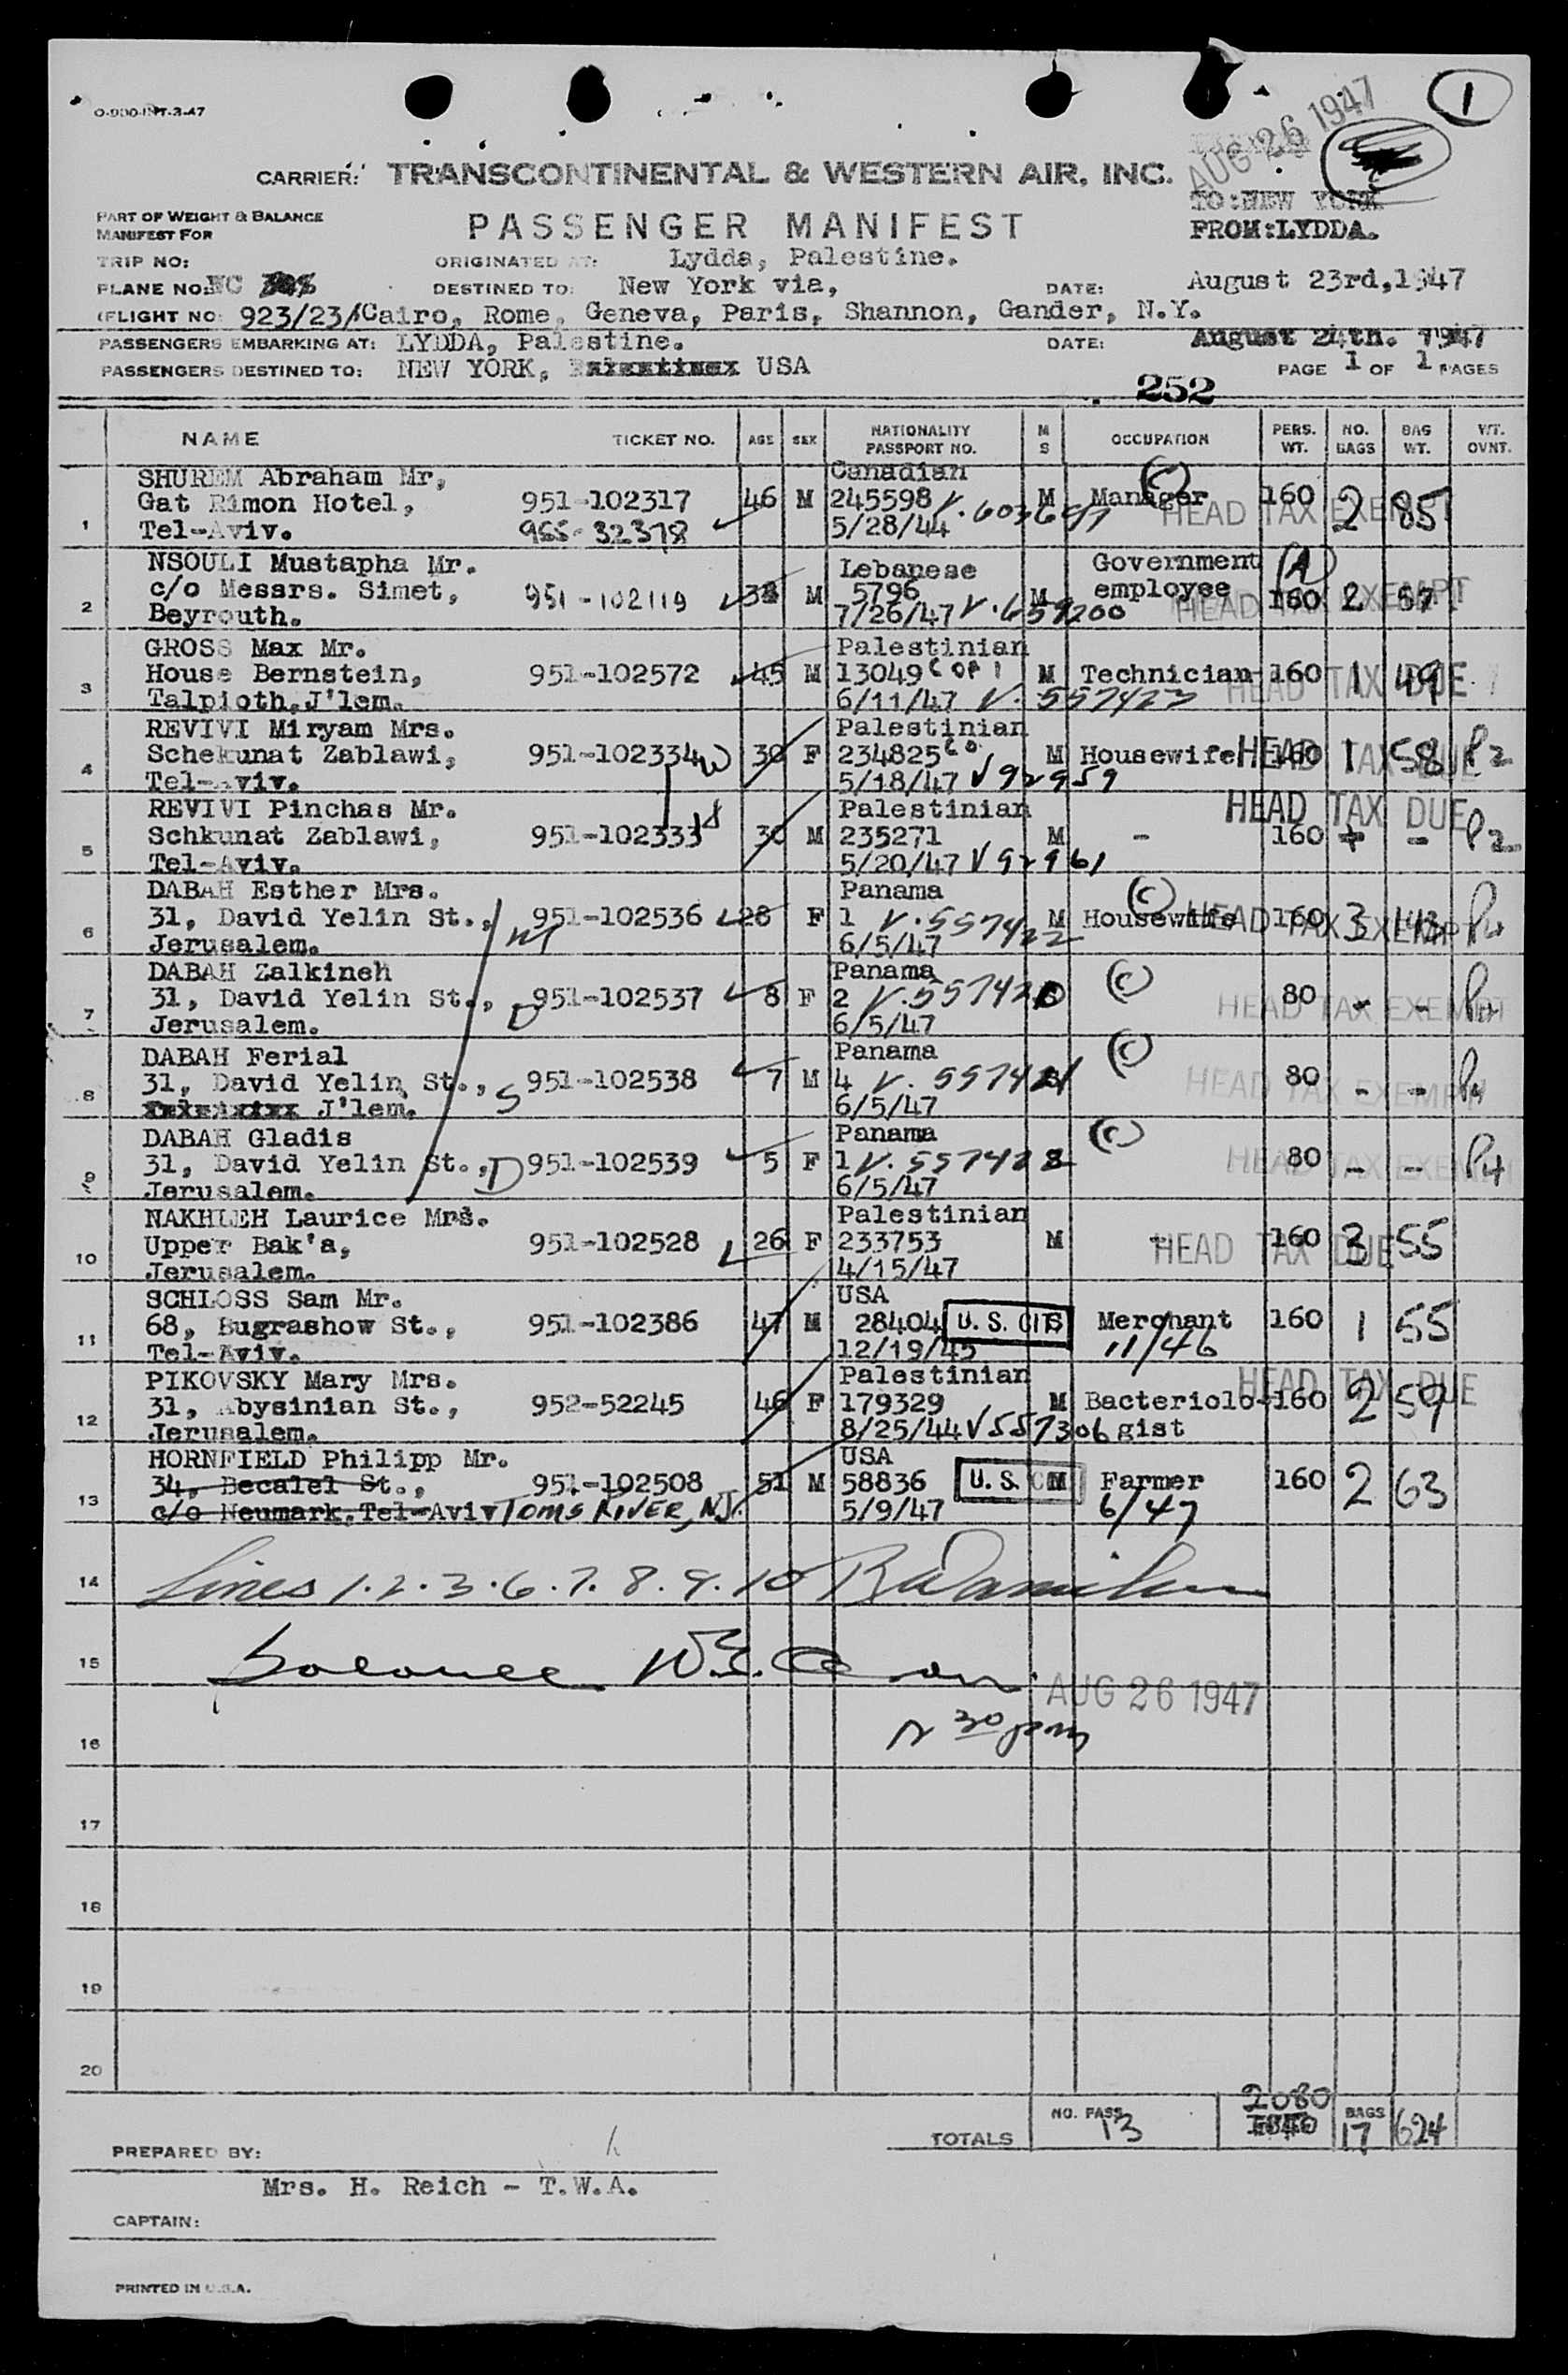 O-900-INT-3-47
1
AUG 26 1947
CARRIER: TRANSCONTINENTAL & WESTERN AIR, INC.
TO:NEW YORK
PART OF WEIGHT & BALANCE
MANIFEST FOR
PASSENGER MANIFEST
FROM:LYDDA.
TRIP NO: ORIGINATED AT: Lydda, Palestine.
PLANE NO: NC DESTINED TO: New York via, DATE: August 23rd,1947
FLIGHT NO: 923/23/ Cairo, Rome, Geneva, Paris, Shannon, Gander, N.Y.
PASSENGERS EMBARKING AT: LYDDA, Palestine. DATE: August 24th. 1947
PASSENGERS DESTINED TO: NEW YORK, USA PAGE 1 OF 1 PAGES
252
NAME TICKET NO. AGE SEX NATIONALITY PASSPORT NO. M S OCCUPATION PERS. WT. NO. BAGS BAG WT. WT. OVNT.
SHUREM Abraham Mr, Canadian (C)
Gat Rimon Hotel, 951-102317 46 M 245598 V.603697 M Manager 160 2 85 HEAD TAX EXEMPT
1 Tel-Aviv. 955-32378 5/28/44
NSOULI Mustapha Mr. Lebanese Government (A)
c/o Messrs. Simet, 951-102119 38 M 5796 M employee 160 2 57 HEAD TAX EXEMPT
2 Beyrouth. 7/26/47 V.659200
GROSS Max Mr. Palestinian
House Bernstein, 951-102572 45 M 13049 M Technician 160 1 49 HEAD TAX DUE
3 Talpioth,J'lem. 6/11/47 V.557423
REVIVI Miryam Mrs. Palestinian
Schekunat Zablawi, 951-102334 W 30 F 234825 M Housewife 160 1 58 P2 HEAD TAX DUE
4 Tel-Aviv. 5/18/47 V92959
REVIVI Pinchas Mr. Palestinian HEAD TAX DUE
Schkunat Zablawi, 951-102333 30 M 235271 M - 160 - P2
5 Tel-Aviv. 5/20/47 V92961
DABAH Esther Mrs. Panama (C)
31, David Yelin St., 951-102536 28 F 1 V.557422 M Housewife 160 3 143 P4 HEAD TAX EXEMPT
6 Jerusalem. 6/5/47
DABAH Zalkineh Panama (C)
31, David Yelin St., D 951-102537 8 F 2 80 - - P4 HEAD TAX EXEMPT
7 Jerusalem. 6/5/47
DABAH Ferial Panama (C)
31, David Yelin St., S 951-102538 7 M 4 80 - - P4 HEAD TAX EXEMPT
8 J'lem. 6/5/47
DABAH Gladis Panama (C)
31, David Yelin St., D 951-102539 5 F 1 V.557428 80 - - P4 HEAD TAX EXEMPT
9 Jerusalem. 6/5/47
NAKHLEH Laurice Mrs. Palestinian
Upper Bak'a, 951-102528 26 F 233753 M - 160 3 55 HEAD TAX DUE
10 Jerusalem. 4/15/47
SCHLOSS Sam Mr. USA
68, Bugrashow St., 951-102386 47 M 28404 U.S. CIT S Merchant 160 1 55
11 Tel-Aviv. 12/19/45 11/46
PIKOVSKY Mary Mrs. Palestinian HEAD TAX DUE
31, Abysinian St., 952-52245 46 F 179329 M Bacteriolo- 160 2 59
12 Jerusalem. 8/25/44 V557306 gist
HORNFIELD Philipp Mr. USA
34, Becalel St., 951-102508 51 M 58836 U.S. M Farmer 160 2 63
13 c/o Neumark,Tel-Aviv TOMS RIVER, NJ. 5/9/47 6/47
14 Lines 1.2.3.6.7.8.9.10
15 balance
AUG 26 1947
16
17
18
19
20
TOTALS NO. PASS. 13 2080 BAGS 17 624
PREPARED BY:
Mrs. H. Reich - T.W.A.
CAPTAIN:
PRINTED IN U.S.A.